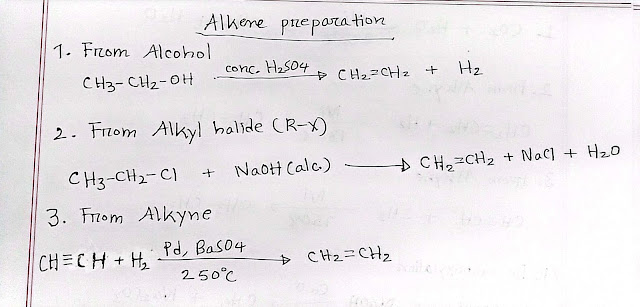 Alkene preparation
1. From Alcohol
CH3-CH2-OH conc. H2SO4 → CH2=CH2 + H2
2. From Alkyl halide (R-X)
CH3-CH2-Cl + NaOH (alc.) → CH2=CH2 + NaCl + H2O
3. From Alkyne
CH≡CH + H2 Pd, BaSO4 → CH2=CH2
250°C